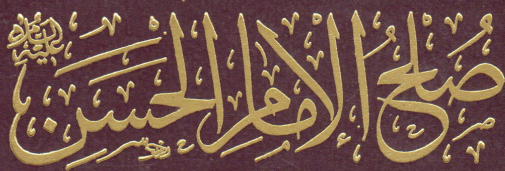 صُلحُ الإمامِ الحَسَن عليه السلام